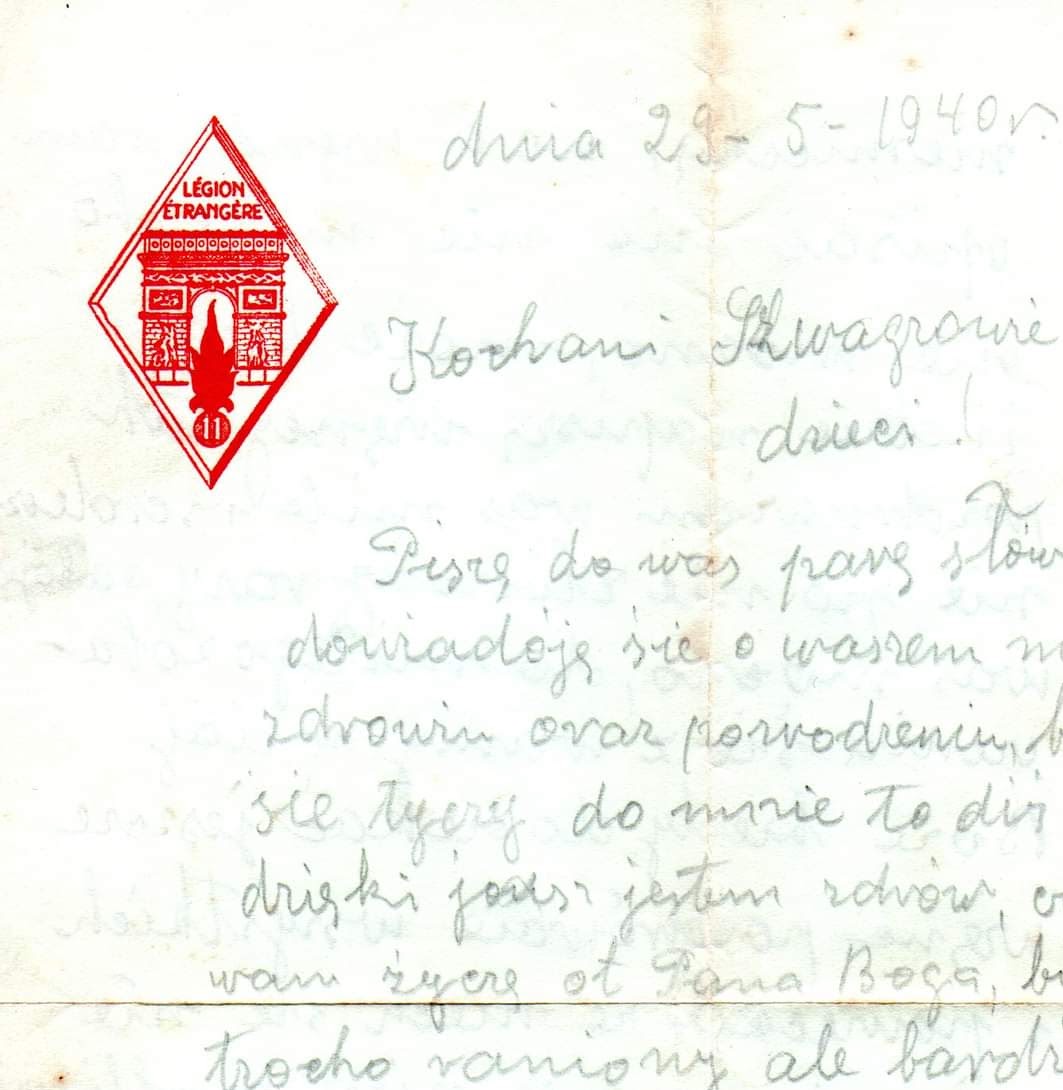 LÉGION
ÉTRANGÈRE
11
dnia 29-5-1940r.
Kochani Szwagrowie
dzieci!
Piszę do was parę słów
dowiadóję się o waszem
zdrowiu oraz powodzeniu,
się tyczy do mnie to
dzięki jestem zdrów,
wam życzę ot Pana Boga,
trocho raniony ale